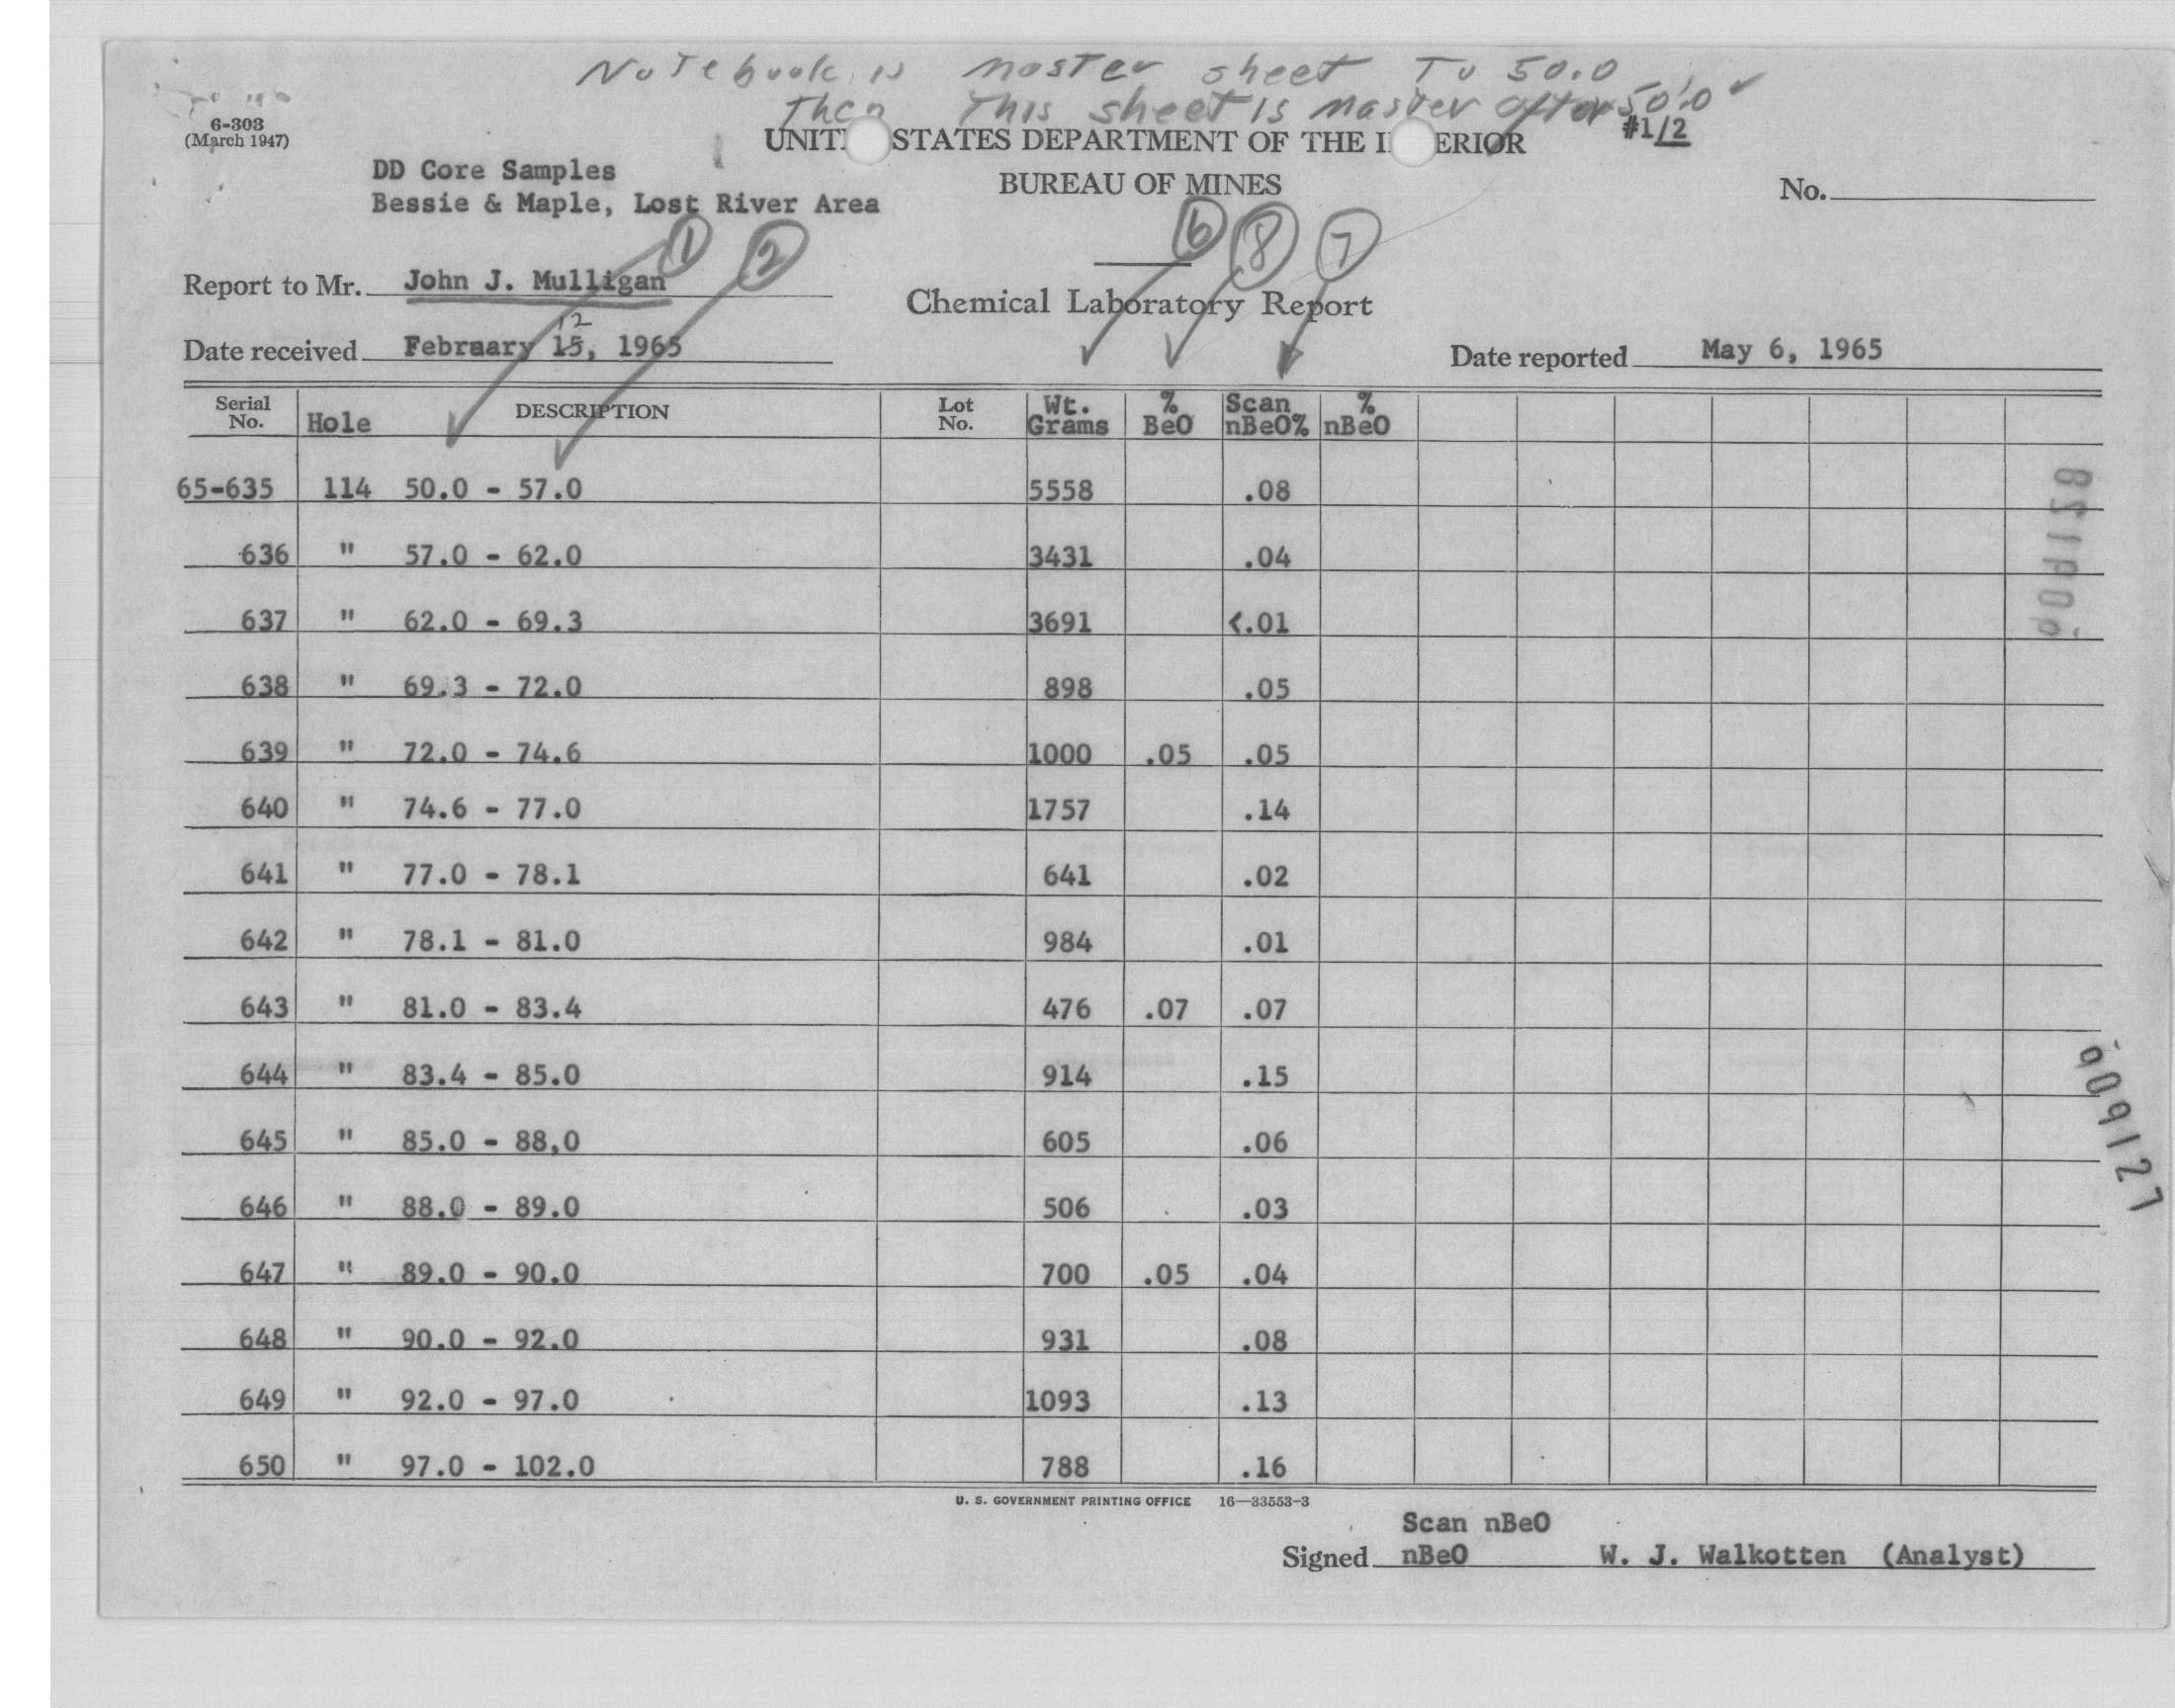 Notebook is master sheet To 50.0
Then This sheet is Master after 50.0
6-303
(March 1947)
UNIT STATES DEPARTMENT OF THE I ERIOR
#1/2
DD Core Samples
Bessie & Maple, Lost River Area
BUREAU OF MINES
No.
1 2 6 8 7
Report to Mr. John J. Mulligan
Chemical Laboratory Report
12
Date received February 15, 1965
Date reported May 6, 1965
Serial No. Hole DESCRIPTION Lot No. Wt. Grams % BeO Scan nBeO% % nBeO
65-635 114 50.0 - 57.0 5558 .08
636 " 57.0 - 62.0 3431 .04
637 " 62.0 - 69.3 3691 <.01
638 " 69.3 - 72.0 898 .05
639 " 72.0 - 74.6 1000 .05 .05
640 " 74.6 - 77.0 1757 .14
641 " 77.0 - 78.1 641 .02
642 " 78.1 - 81.0 984 .01
643 " 81.0 - 83.4 476 .07 .07
644 " 83.4 - 85.0 914 .15
645 " 85.0 - 88,0 605 .06
646 " 88.0 - 89.0 506 .03
647 " 89.0 - 90.0 700 .05 .04
648 " 90.0 - 92.0 931 .08
649 " 92.0 - 97.0 1093 .13
650 " 97.0 - 102.0 788 .16
U. S. GOVERNMENT PRINTING OFFICE 16—33553-3
Scan nBeO
Signed nBeO W. J. Walkotten (Analyst)